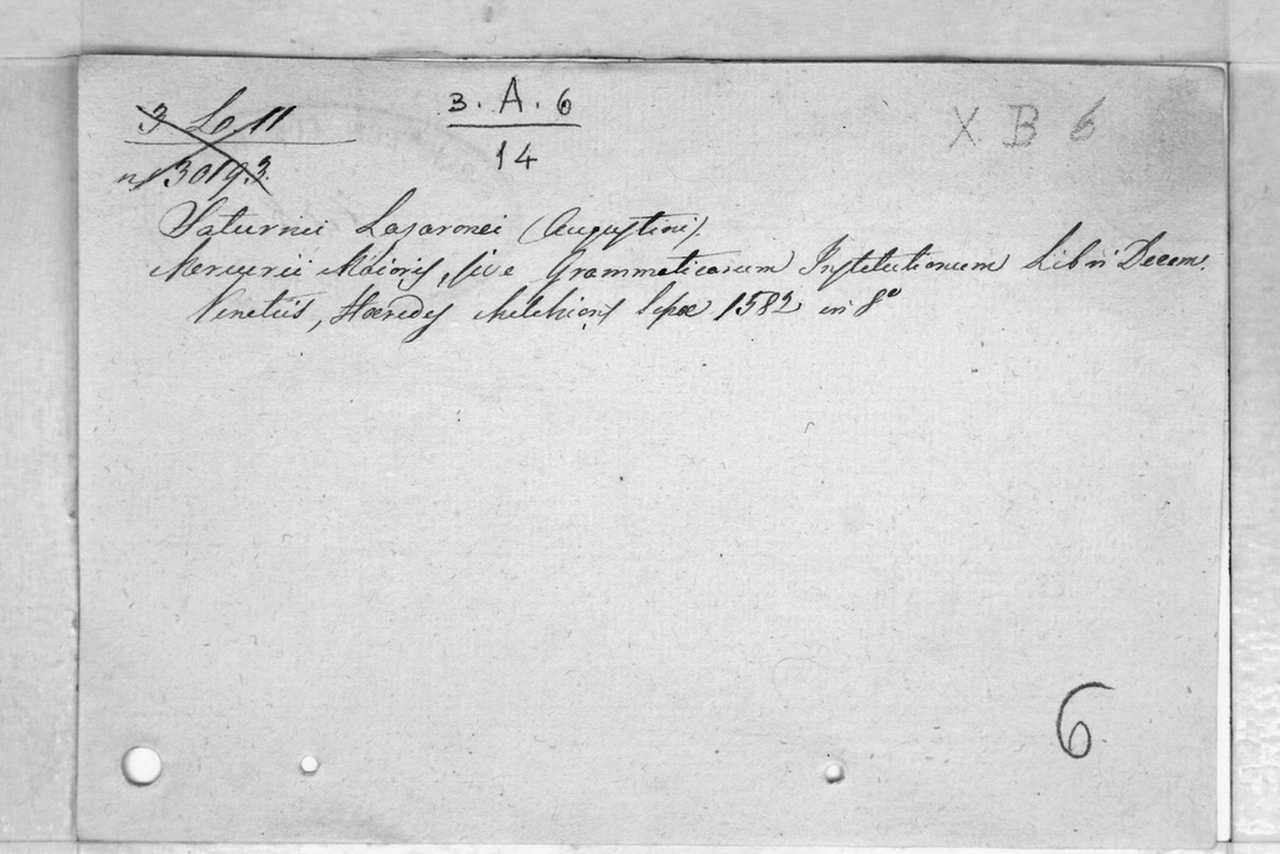 3 L 11
n° 30193.
3. A. 6
14
X B 6
Saturnii Lazaronei (Augustini).
Mercurii Maioris, sive Grammaticarum Institutionum Libri Decem.
Venetiis, Hæredes Melchioris Sessæ 1582 in 8°
6